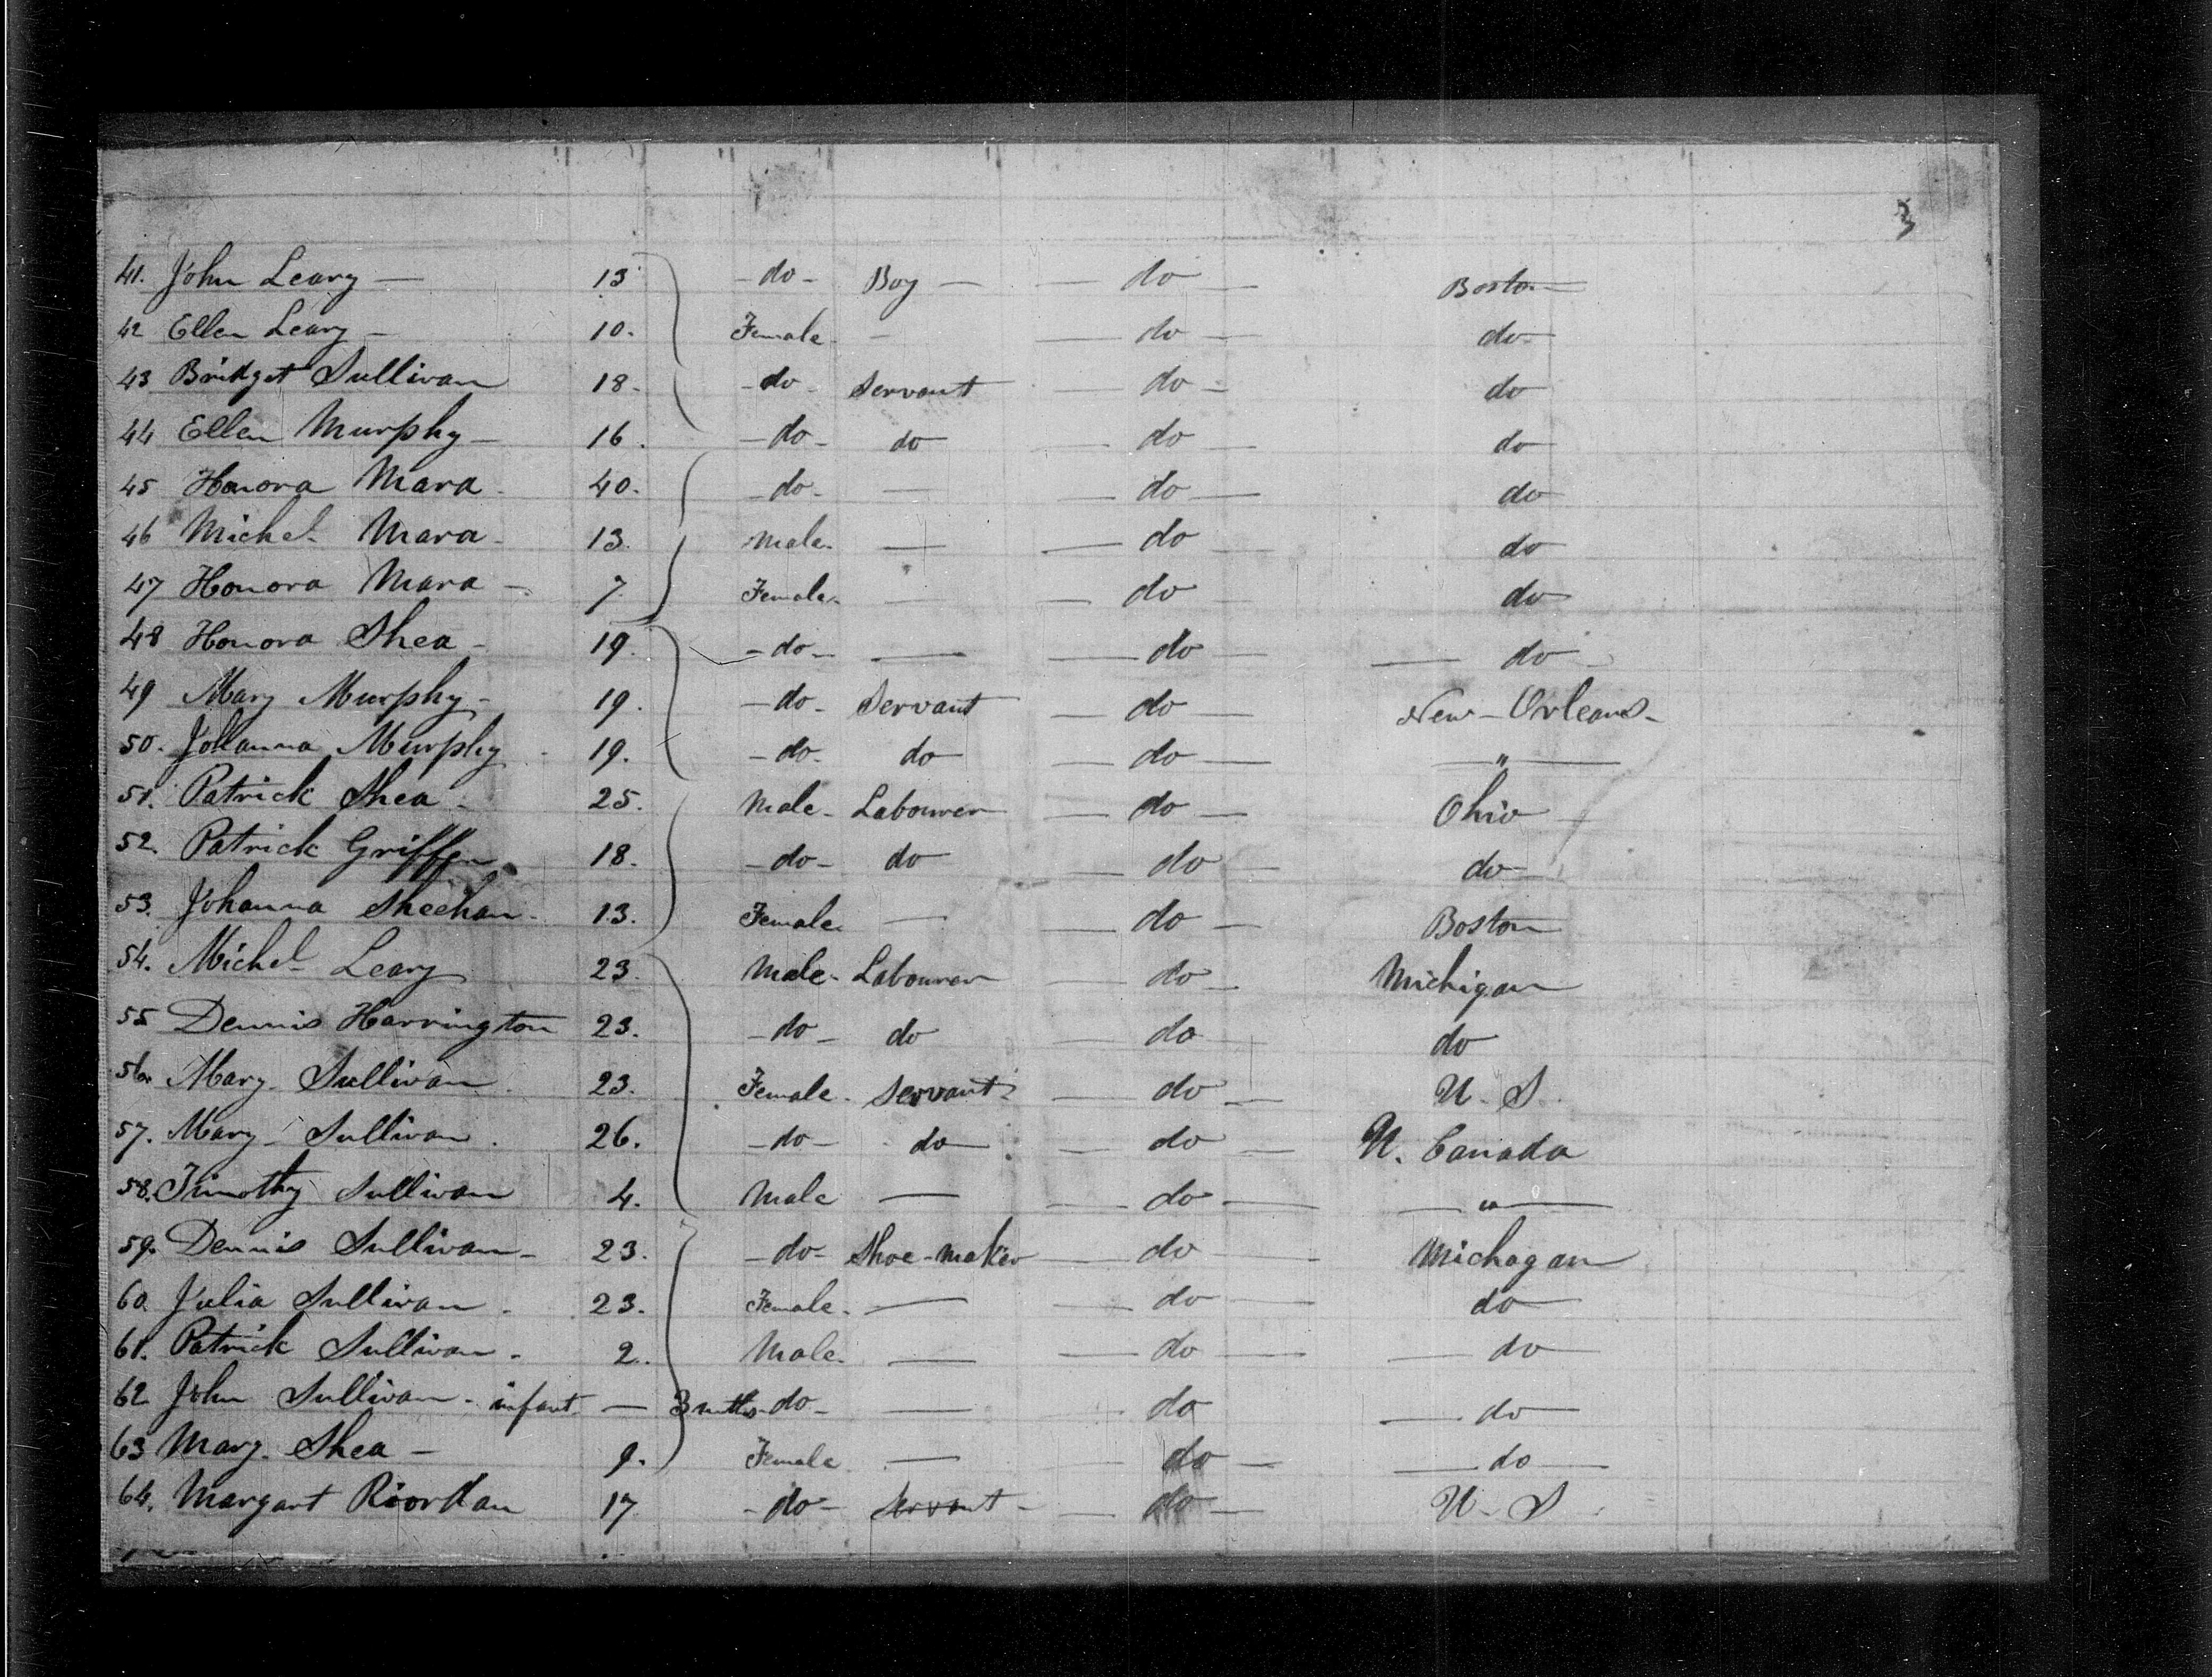 3
41. John Leary — 13 - do - Boy — — do — Boston
42 Ellen Leary — 10. Female - — — do — do
43 Bridget Sullivan 18 - - do - Servant — do — do
44 Ellen Murphy — 16. - do - do — do — do
45 Honora Mara - 40. - do - — — do — do
46 Michel Mara - 13. Male - — — do — do
47 Honora Mara - 7. Female - — — do — do
48 Honora Shea - 19. - do - — — do — — do -
49 Mary Murphy - 19. - do - Servant — do — New - Orleans -
50. Johanna Murphy - 19. - do - do — do — — " —
51. Patrick Shea - 25. Male - Labourer — do — Ohio -
52. Patrick Griffen 18. - do - do do — do -
53. Johanna Sheehan - 13. Female - — — do — Boston
54. Michel Leary 23. Male - Labourer — do — Michigan
55 Dennis Harrington 23. - do - do — do do
56. Mary Sullivan . 23. Female - Servant — do — U. S.
57. Mary - Sullivan . 26. - do - do — do — U. Canada
58. Timothy Sullivan 4. Male — — do — — " —
59. Dennis Sullivan - 23. - do - Shoe - maker — do — Michagan
60. Julia Sullivan . 23. Female - — — do — do
61. Patrick Sullivan . 2. Male - — — do — — do
62 John Sullivan - infant — 3 mths - do - — - do — do
63 Mary Shea — 9. Female — - do — — do —
64. Margart Riordan 17 - do - Servant - — do — U - S .